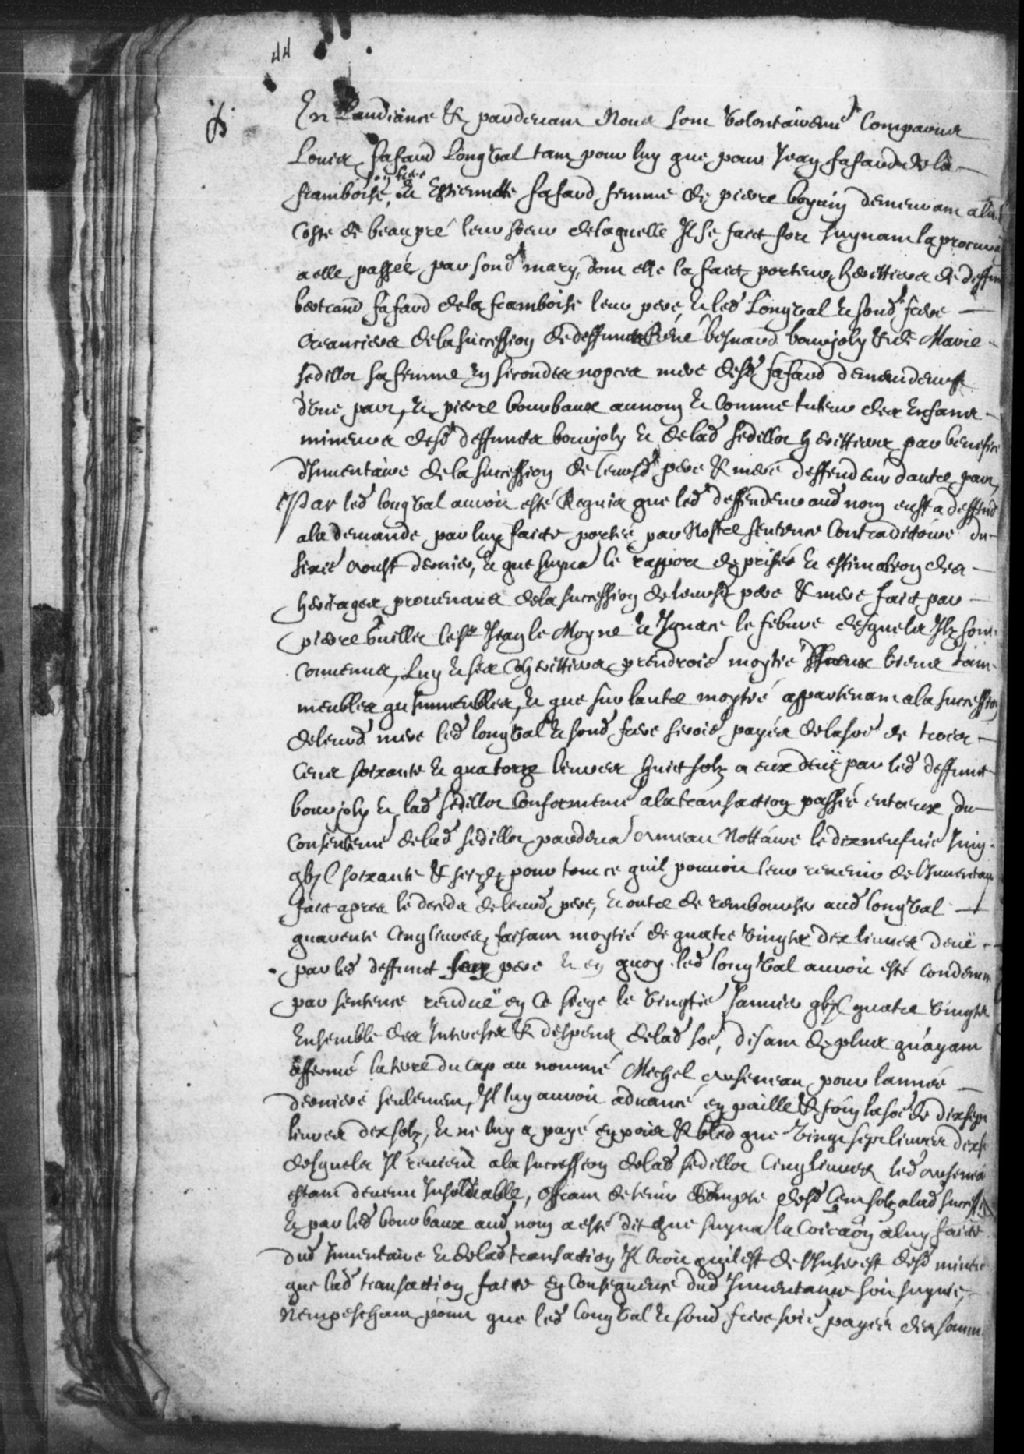 44
En Laudiance & pardevant Nous sont volontairemt Comparus
Louis fafard Longval tant pour luy que pour Jean fafard de la
son frere
framboise, et Estiennette fafard femme de pierre boyvin demeurant a la
Coste de beaupré leur soeur de laquelle Il se faict fort suyvant la procura
a elle passée par sond mary, dont elle la faict porteur, heritiers de deffun
bertrand fafard de la framboise leur pere, et led Longval et sond frere
Creanciers de la succession de deffuncts René besnard bourjoly & de Marie
sedillot sa femme en secondes nopces mere desd fafard demandeurs
d'une part, Et pierre bourbaux au nom et comme tuteur des Enfans
mineurs desd deffuncts bourjoly et de lad sedillot heritiers par benefice
d'Inventaire de la succession de leursd pere & mere deffendeur d'autre part
Par led longval auroit esté Requis que led deffendeur aud nom eust a deffend
a la demande par luy faicte portée par Nostre sentence Contradictoire du
saict Aoust dernier, et que suyvt le rapport de prisée et estimation des
heritages provenans de la succession de leursd pere & mere faict par
pierre Guillet lesr Jean le Moyne et Ignace le febvre desquels Ils sont
Convenus, Luy et ses Coheritiers prendroit moytié biens tant
meubles qu'Immeubles, et que sur lautre moytié appartenant a la succession
de leurd mere led longval et sond frere seroit payés de la soe de trois
Cens soixante et quatorze livres huict solz a eux deüe par led deffunct
bourjoly et lad sedillot Conformemt a la transaction passée entreux du
Consentemt de lad sedillot pardevt Ameau Nottaire le dixneufvie Juin
gbjC soixante & seize pour tout ce quil pouvoit leur revenir de l'Inventaire
faict apres le deceds de leurd pere, et outre de rembourser aud longval
quarente Cinq livres, faisant moytié de quatre vingts dix livres deüe
par led deffunct leur pere et en quoy led longval auroit esté condemné
par sentence rendue en ce siege le vingtie Janvier gbjC quatre vingts
Ensemble des Interests & despens de lad soe, disant de plus qu'ayant
affermé la terre du cap au nommé Mechel pour l'année
derniere seulement, Il luy auroit advancé en paille & foin la soe de dix sept
livres dix solz, et ne luy a payé en pois & bled que vingt sept livres dix s
desquels Il revient a la succession de lad sedillot Cinq livres led
estant devenu Insolvable, offrant de tenir Compte desd Cent solz a lad succession
Et par led bourbaux aud nom a esté dit que suyvt la a luy faicte
dud Inventaire et de lad transaction Il croit quil est de l'Interest desd mineurs
que lad transaction faicte en Consequence dud Inventaire soit suyvie,
Nempeschant point que led longval et sond frere soit payés des somm